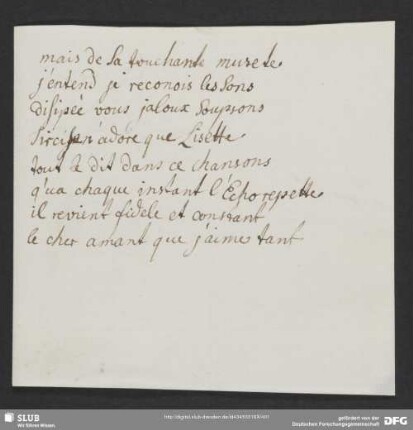 mais de sa touchante musete
j'entend je reconois les sons
disipée vous jaloux soupsons
Tircis n'adore que Lisette
tout à dit dans ce chansons
qu'a chaque instant l'Echo repette
il revient fidele et constant
le cher amant que j'aime tant
SLUB
Wir führen Wissen.
http://digital.slub-dresden.de/
gefördert von der
Deutschen Forschungsgemeinschaft
DFG